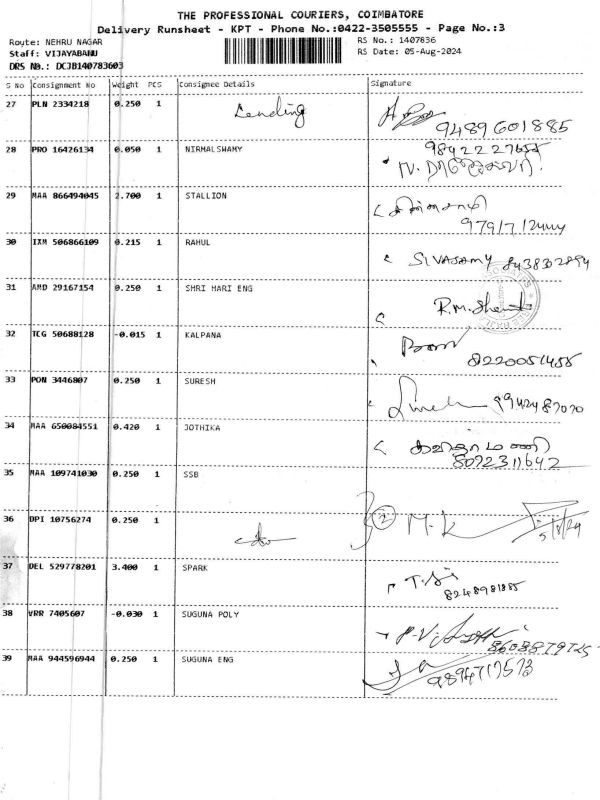 THE PROFESSIONAL COURIERS, COIMBATORE
Delivery Runsheet - KPT - Phone No.:0422-3505555 - Page No.:3
Route: NEHRU NAGAR
RS No.: 1407836
Staff: VIJAYABANU
RS Date: 05-Aug-2024
DRS No.: DCJB140783603
S No Consignment No Weight PCS Consignee Details Signature
27 PLN 2334218 0.250 1
9489601885
28 PRO 16426134 0.050 1 NIRMALSHAMY
9842227655
29 MAA 866494045 2.700 1 STALLION
சின்னசாமி
30 IXM 506866109 0.215 1 RAHUL SIVASAMY 8438302894
31 AMD 29167154 0.250 1 SHRI HARI ENG
32 TCG 50688128 -0.015 1 KALPANA
8220051455
33 PON 3446807 0.250 1 SURESH
34 MAA 650084551 0.420 1 JOTHIKA
8072311642
35 MAA 109741030 0.250 1 SSB
36 DPI 10756274 0.250 1 2 M-K
37 DEL 529778201 3.400 1 SPARK
8248981885
38 VRR 7405607 -0.030 1 SUGUNA POLY
39 MAA 944596944 0.250 1 SUGUNA ENG
9894717573